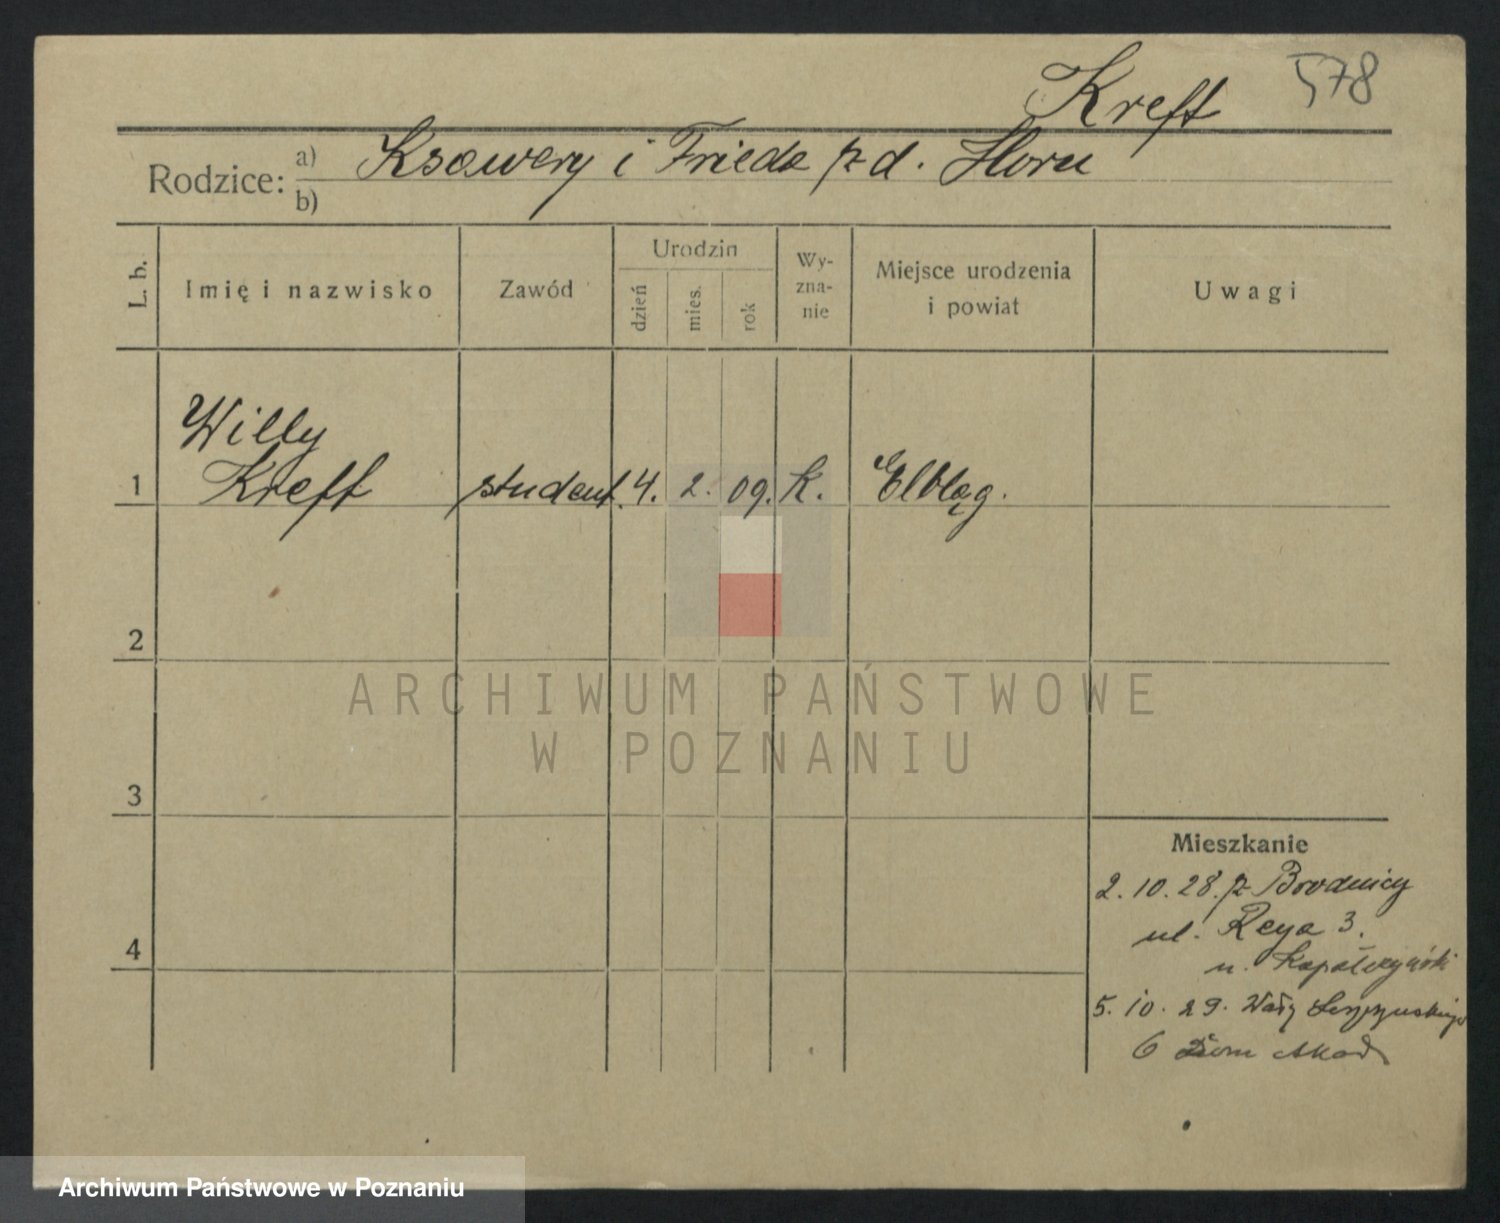 Kreft 578
Rodzice: a) Ksawery i Frieda z d. Horn
b)
L. b. Imię i nazwisko Zawód Urodzin dzień mies. rok Wyznanie Miejsce urodzenia i powiat Uwagi
Willy
1 Kreft student 4. 2. 09. k. Elbląg.
2
ARCHIWUM PAŃSTWOWE
W POZNANIU
3
Mieszkanie
2. 10. 28. z Brodnicy
ul. Reya 3.
4
u.
5. 10. 29. Wały Leszczyńskiego
6 Dom Akad
Archiwum Państwowe w Poznaniu